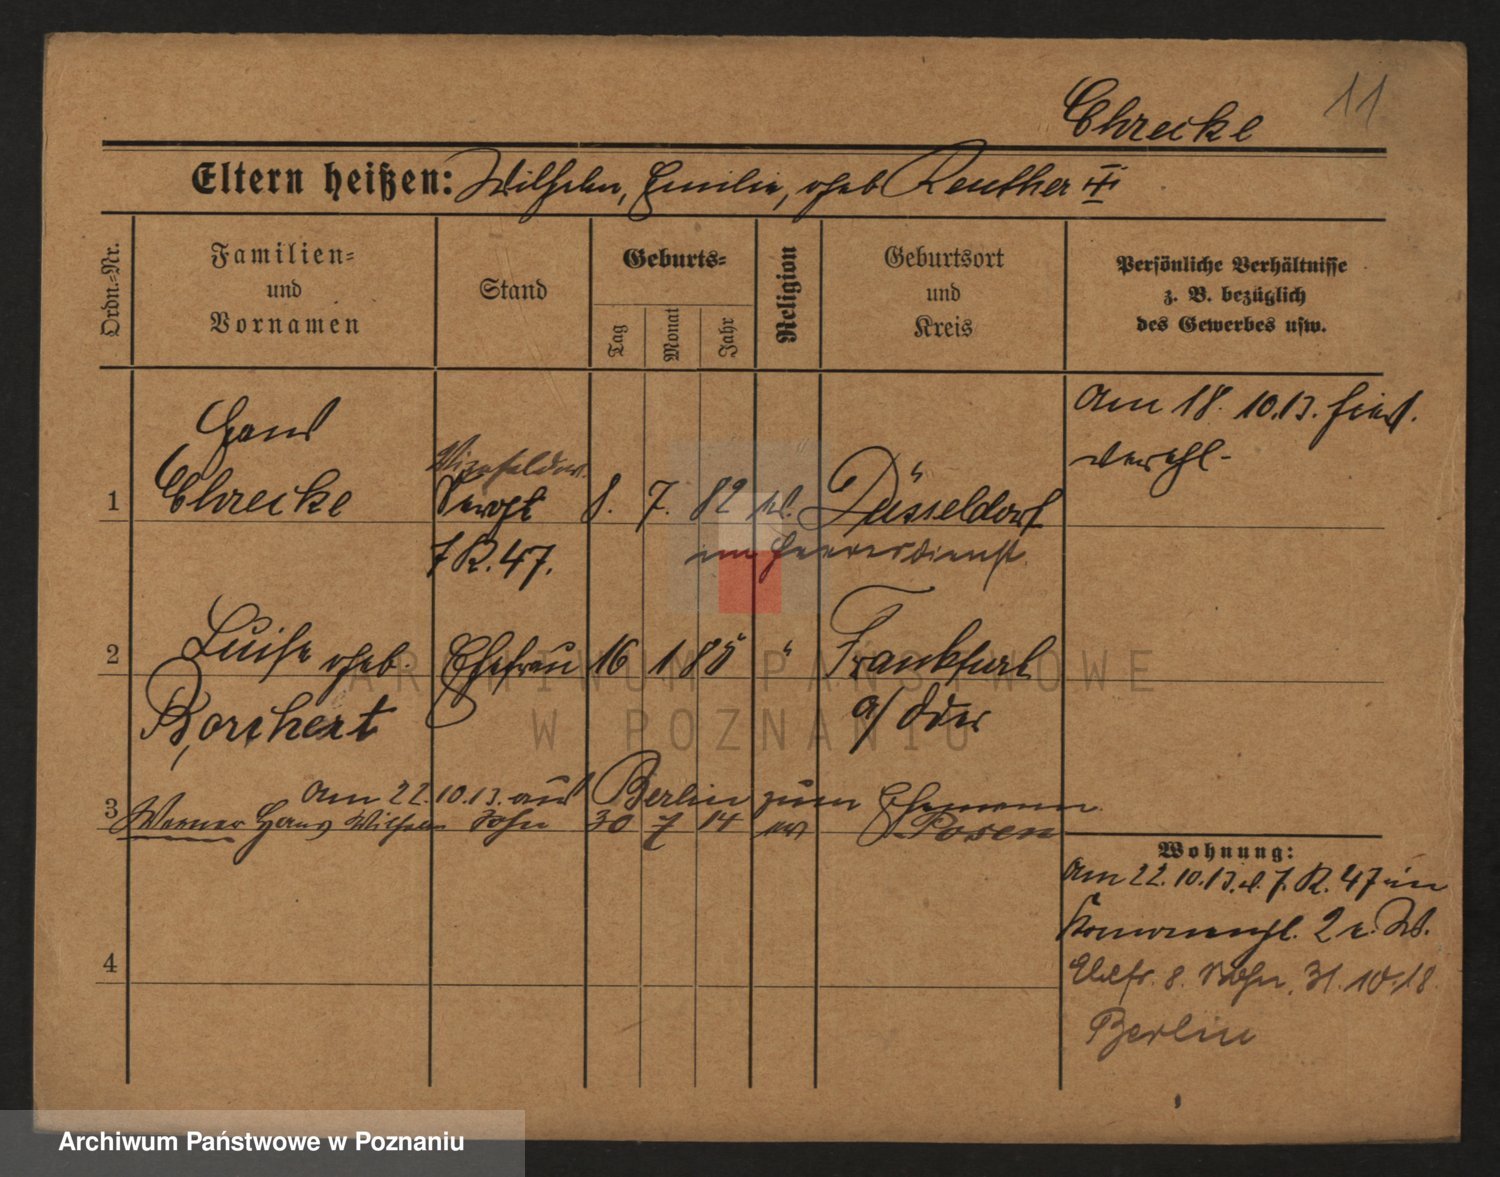 11
Chrecke
Eltern heißen: Wilhelm, Emilie, geb Reuther
Ordn.-Nr.
Familien-
und
Vornamen
Stand
Geburts-
Tag
Monat
Jahr
Religion
Geburtsort
und
Kreis
Persönliche Verhältnisse
z. B. bezüglich
des Gewerbes usw.
Hans
Vizefeldw.
1 Chrecke Sergt 8. 7. 82 Düsseldorf
J R. 47. im Heeresdienst
Am 18. 10. 13. hier
verehl.
2 Luise geb. Ehefrau 16 1 85 " Frankfurt
Borchert a/Oder
3 Am 22. 10. 13. aus Berlin zum Ehemann.
Werner Hans Wilhelm Sohn 30 7 14 ev Posen
4
Wohnung:
Am 22. 10. 13. J. R. 47 in
2
Ehefr. 8. Sohn. 31. 10. 18.
Berlin
ARCHIWUM PAŃSTWOWE
W POZNANIU
Archiwum Państwowe w Poznaniu